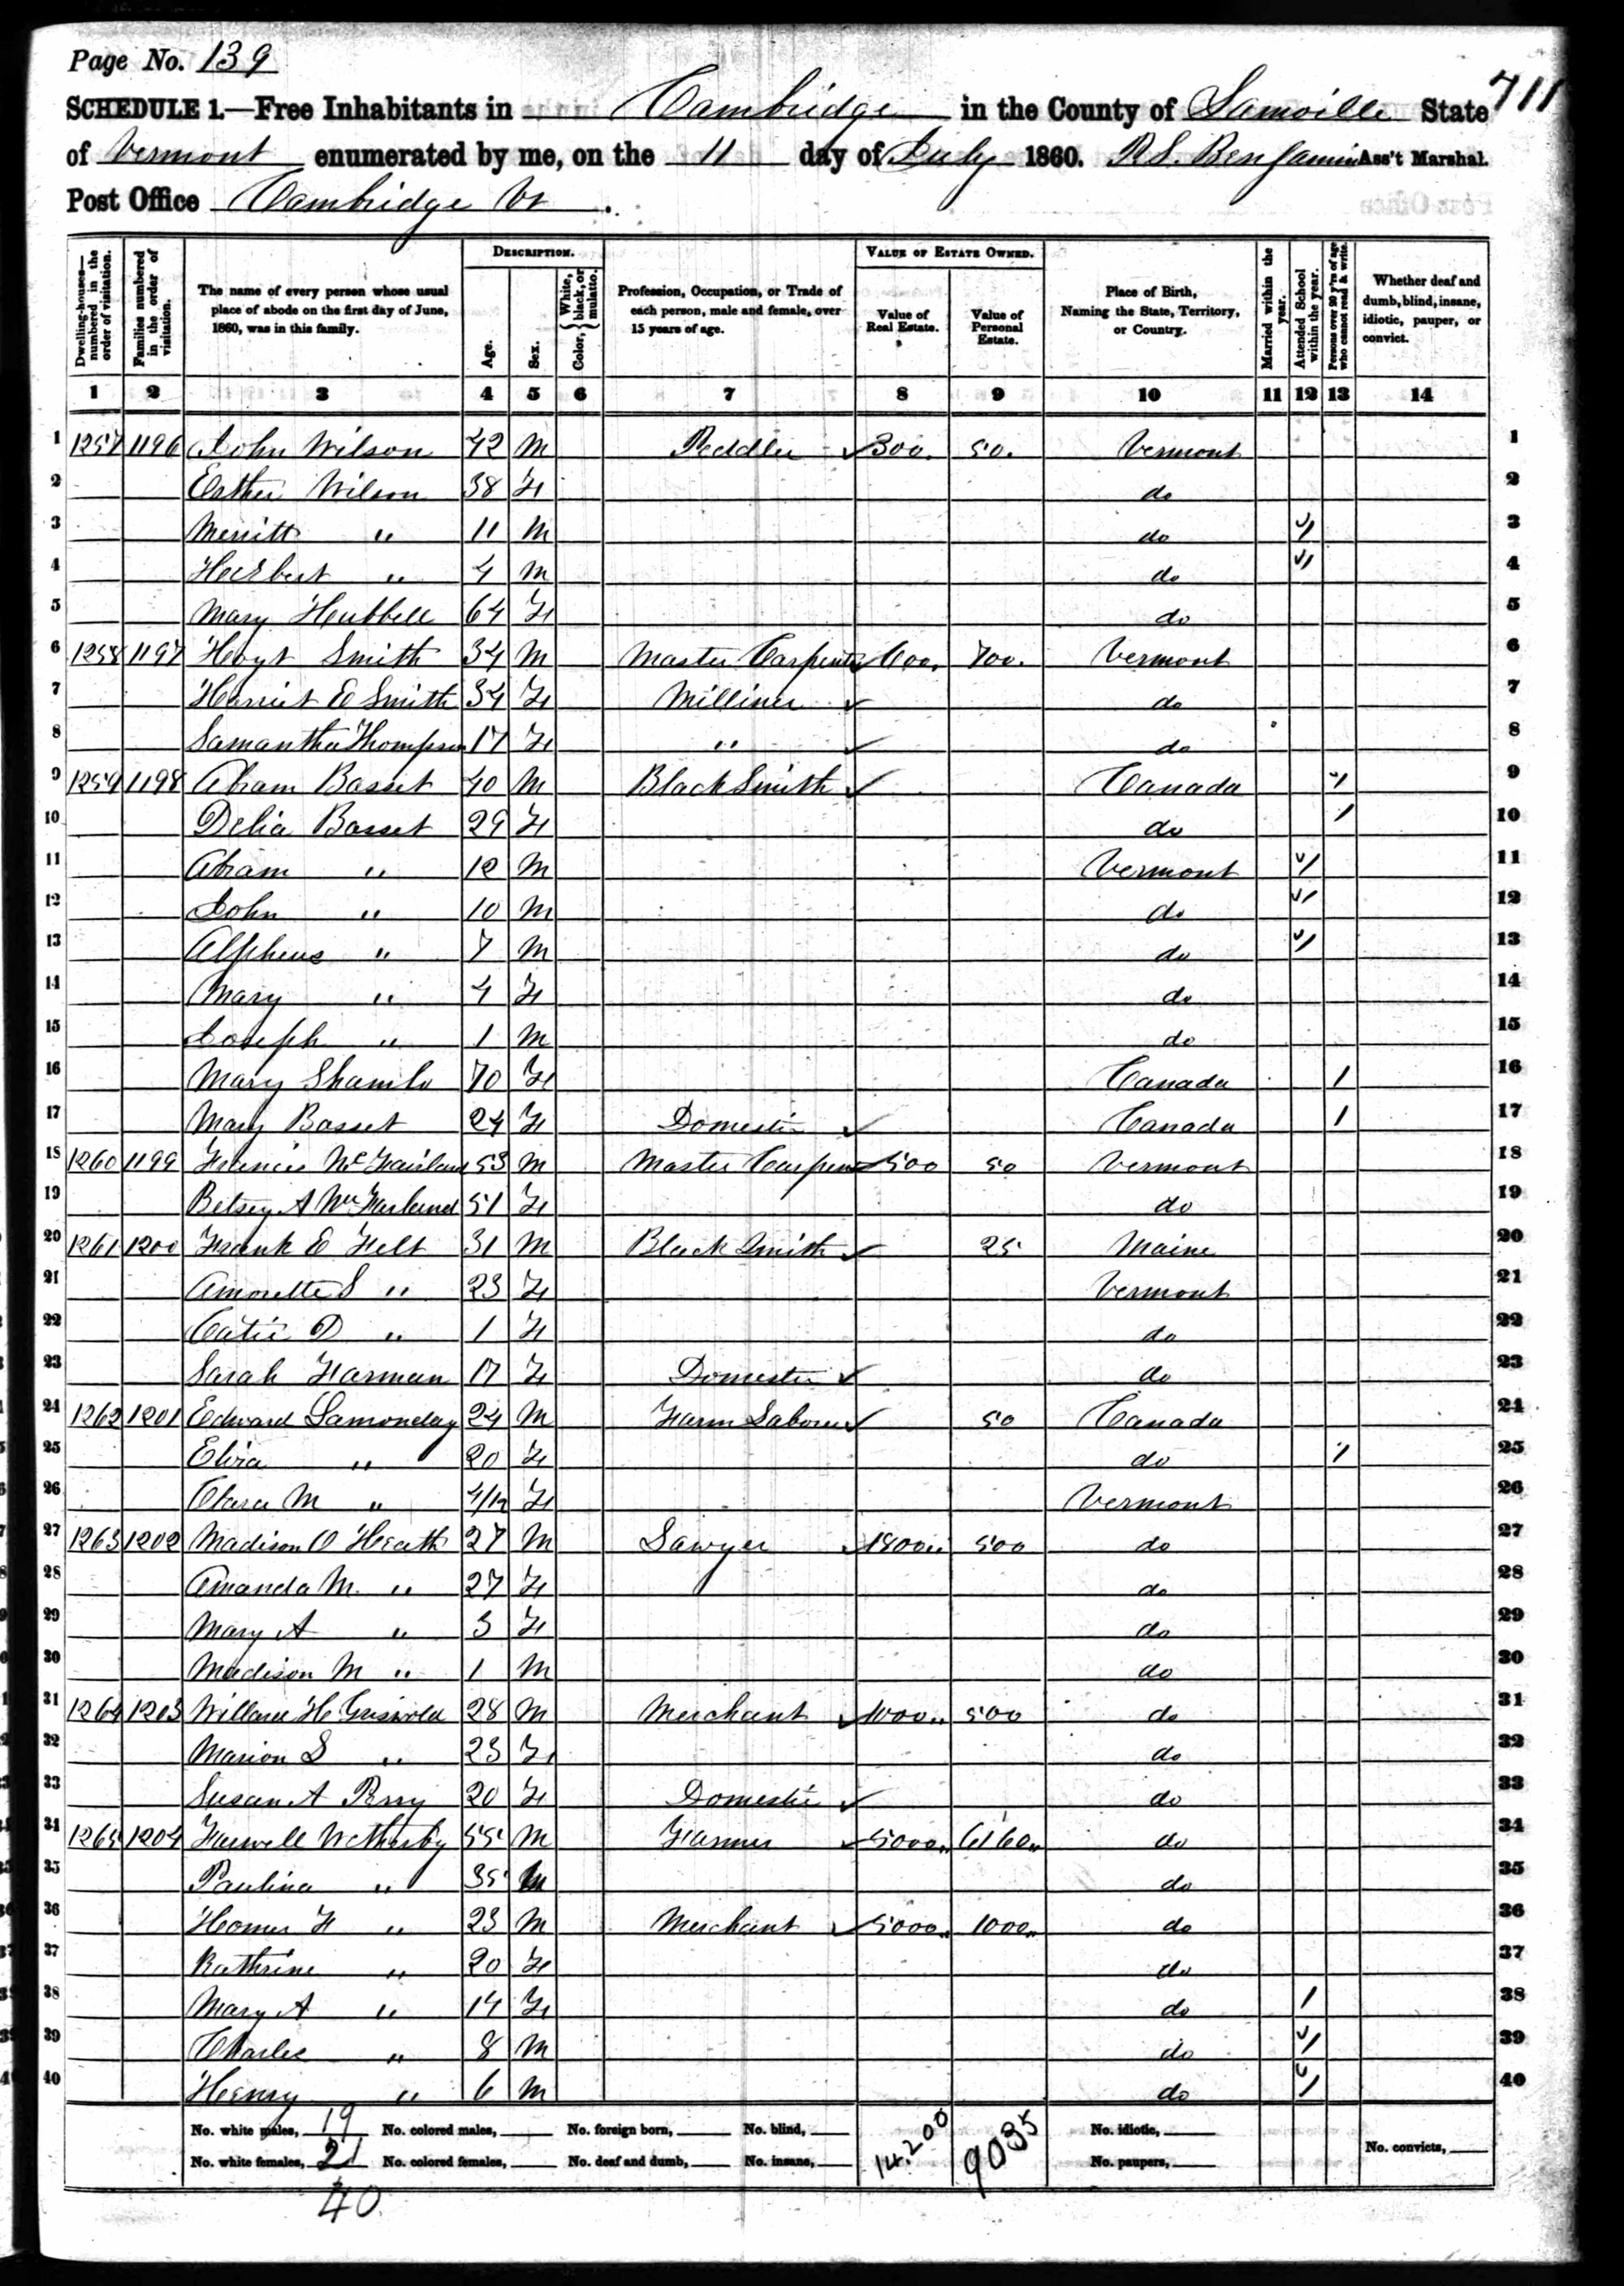 Page No. 139
711
SCHEDULE 1.—Free Inhabitants in Cambridge in the County of Lamoille State
of Vermont enumerated by me, on the 11 day of July 1860. R. S. Benjamin Ass't Marshal.
Post Office Cambridge Vt.
Dwelling-houses—numbered in the order of visitation.
Families numbered in the order of visitation.
The name of every person whose usual place of abode on the first day of June, 1860, was in this family.
DESCRIPTION.
Age.
Sex.
Color, { White, black, or mulatto.
Profession, Occupation, or Trade of each person, male and female, over 15 years of age.
VALUE OF ESTATE OWNED.
Value of Real Estate.
Value of Personal Estate.
Place of Birth, Naming the State, Territory, or Country.
Married within the year.
Attended School within the year.
Persons over 20 y'rs of age who cannot read & write.
Whether deaf and dumb, blind, insane, idiotic, pauper, or convict.
1 2 3 4 5 6 7 8 9 10 11 12 13 14
1 1257 1196 John Wilson 42 M Peddler 300. 50. Vermont 1
2 Esther Wilson 38 F do 2
3 Merritt " 11 M do / 3
4 Herbert " 4 M do / 4
5 Mary Hubbell 64 F do 5
6 1258 1197 Hoyt Smith 34 M Master Carpenter 600. 700. Vermont 6
7 Harriet E Smith 34 F Milliner do 7
8 Samantha Thompson 17 F " do 8
9 1259 1198 Abram Basset 40 M BlackSmith Canada / 9
10 Delia Basset 29 F do / 10
11 Abram " 12 M Vermont / 11
12 John " 10 M do / 12
13 Alpheus " 7 M do / 13
14 Mary " 4 F do 14
15 Joseph " 1 M do 15
16 Mary Shambo 70 F Canada / 16
17 Mary Basset 24 F Domestic Canada / 17
18 1260 1199 Francis McFarland 53 M Master Carpen 500 50 Vermont 18
19 Betsey A McFarland 51 F do 19
20 1261 1200 Frank E Felt 31 M Black Smith 25 Maine 20
21 Amorette S " 23 F Vermont 21
22 Catie D " 1 F do 22
23 Sarah Farman 17 F Domestic do 23
24 1262 1201 Edward Lamonday 24 M Farm Laborer 50 Canada 24
25 Eliza " 20 F do / 25
26 Clara M " 4/12 F Vermont 26
27 1263 1202 Madison O Heath 27 M Sawyer 1800" 500 do 27
28 Amanda M. " 27 F do 28
29 Mary A " 3 F do 29
30 Madison M " 1 M do 30
31 1264 1203 Willard H Griswold 28 M Merchant 1000" 500 do 31
32 Marion S " 23 F do 32
33 Susan A Perry 20 F Domestic do 33
34 1265 1204 Farwell Wetherby 55 M Farmer 5000" 6160" do 34
35 Paulina " 35 M do 35
36 Homer F " 23 M Merchant 5000" 1000" do 36
37 Kathrine " 20 F do 37
38 Mary A " 14 F do / 38
39 Charles " 8 M do / 39
40 Henry " 6 M do / 40
No. white males, 19 No. colored males, No. foreign born, No. blind, 14.200 9035 No. idiotic,
No. white females, 21 No. colored females, No. deaf and dumb, No. insane, No. paupers, No. convicts,
40